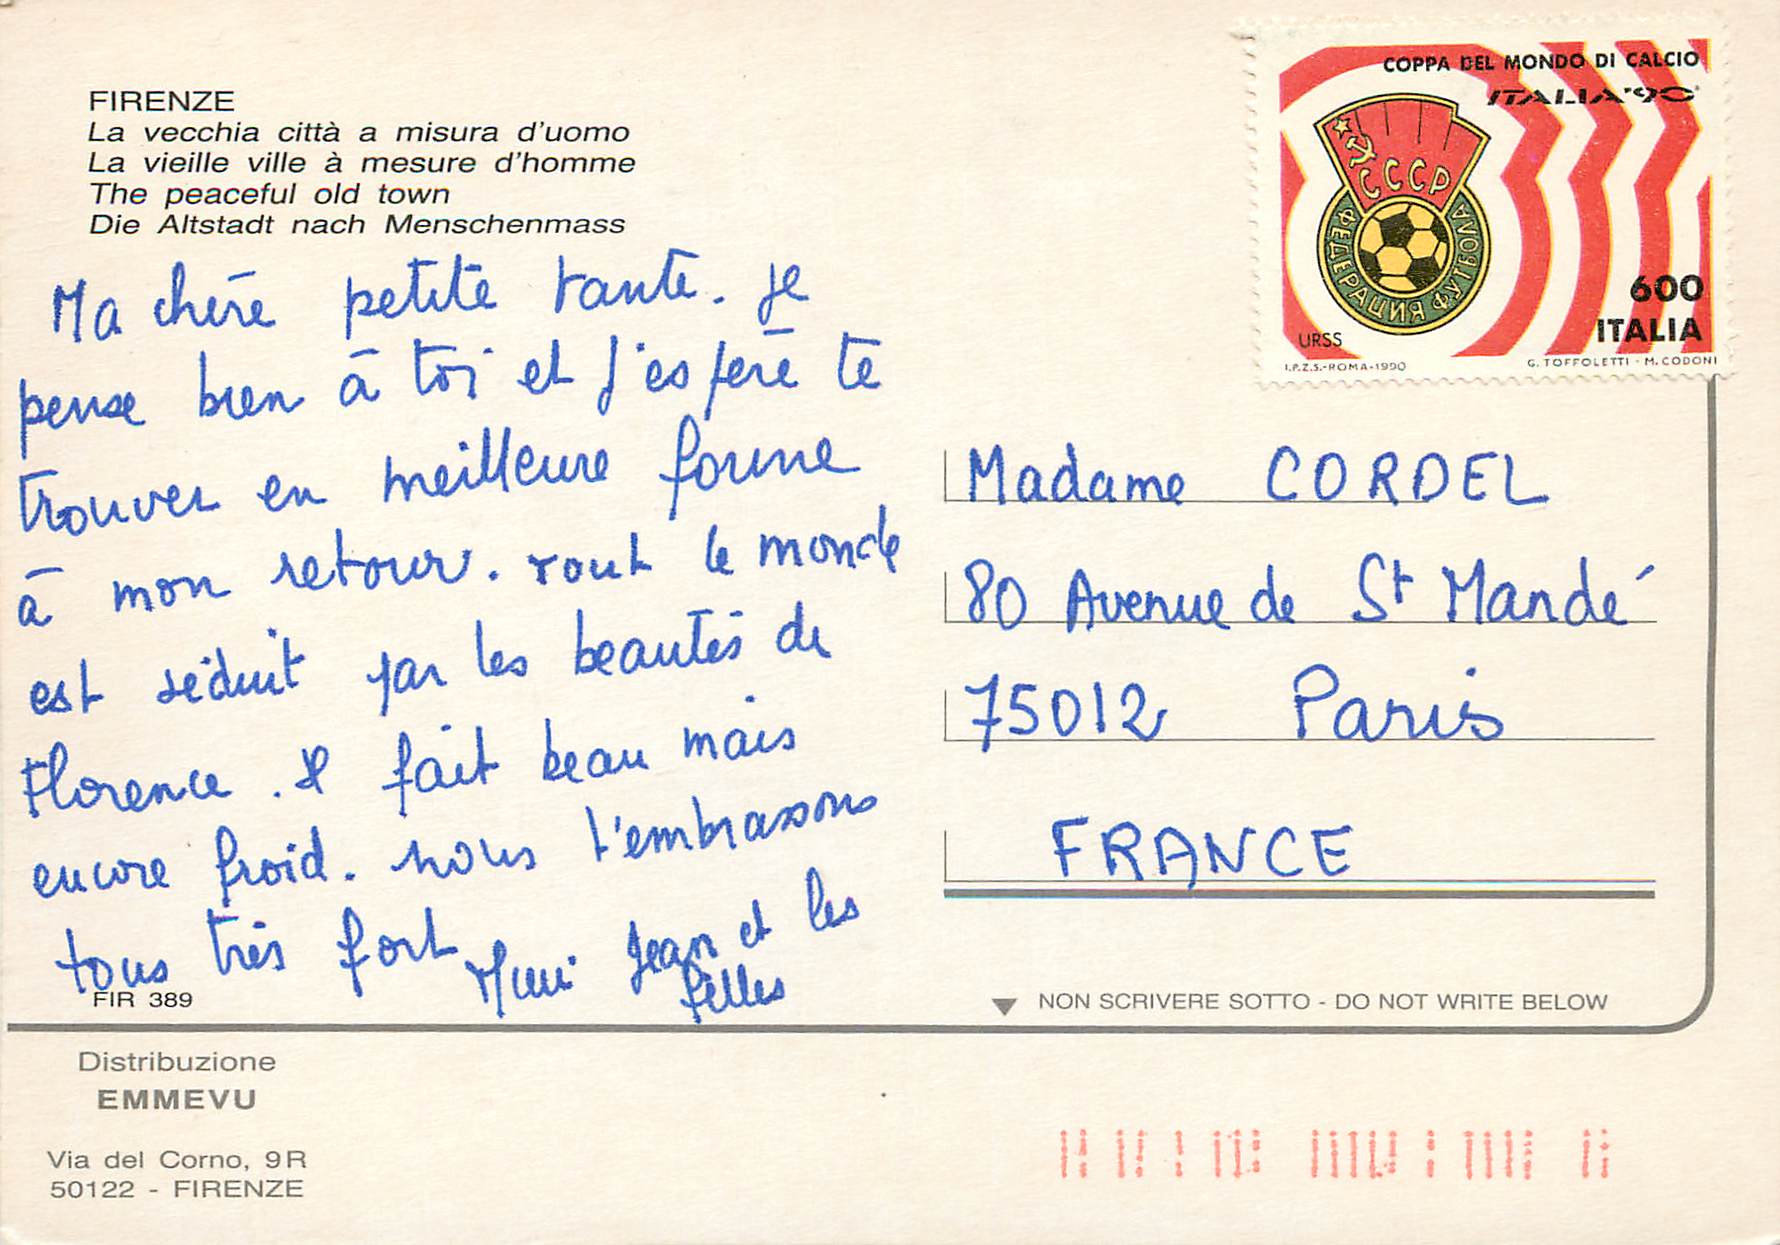 FIRENZE
La vecchia città a misura d'uomo
La vieille ville à mesure d'homme
The peaceful old town
Die Altstadt nach Menschenmass
Ma chère petite tante. Je
pense bien à toi et j'espère te
trouver en meilleure forme
à mon retour. Tout le monde
est séduit par les beautés de
Florence. Il fait beau mais
encore froid. Nous t'embrassons
tous très fort
Jean et les
filles
FIR 389
Distribuzione
EMMEVU
Via del Corno, 9R
50122 - FIRENZE
COPPA DEL MONDO DI CALCIO
ITALIA'90
СССР
ФЕДЕРАЦИЯ ФУТБОЛА
600
ITALIA
URSS
I.P.Z.S.-ROMA-1990
G. TOFFOLETTI - M. CODONI
Madame CORDEL
80 Avenue de St Mandé
75012 Paris
FRANCE
NON SCRIVERE SOTTO - DO NOT WRITE BELOW